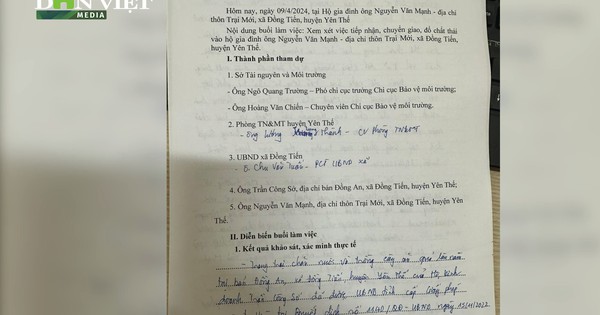 DÂN VIỆT
MEDIA
Hôm nay, ngày 09/4/2024, tại Hộ gia đình ông Nguyễn Văn Mạnh - địa chỉ
thôn Trại Mới, xã Đồng Tiến, huyện Yên Thế
Nội dung buổi làm việc: Xem xét việc tiếp nhận, chuyển giao, đổ chất thải
vào hộ gia đình ông Nguyễn Văn Mạnh - địa chỉ thôn Trại Mới, xã Đồng Tiến,
huyện Yên Thế.
I. Thành phần tham dự
1. Sở Tài nguyên và Môi trường
- Ông Ngô Quang Trường – Phó chi cục trưởng Chi cục Bảo vệ môi trường;
- Ông Hoàng Văn Chiến – Chuyên viên Chi cục Bảo vệ môi trường.
2. Phòng TN&MT huyện Yên Thế
- Ông Lương Thành - CV Phòng TN&MT
3. UBND xã Đồng Tiến
- Ô. Chu Văn - PCT UBND xã
4. Ông Trần Công Sở, địa chỉ bản Đồng An, xã Đồng Tiến, huyện Yên Thế;
5. Ông Nguyễn Văn Mạnh, địa chỉ thôn Trại Mới, xã Đồng Tiến, huyện Yên
Thế.
II. Diễn biến buổi làm việc
1. Kết quả khảo sát, xác minh thực tế
- Trang trại chăn nuôi và trồng cây ăn quả lâu năm
tại bản Đồng An, xã Đồng Tiến, huyện Yên Thế của Hộ kinh
doanh Trần Công Sở đã được UBND tỉnh cấp Giấy phép
/QĐ-UBND ngày 15/4/2022